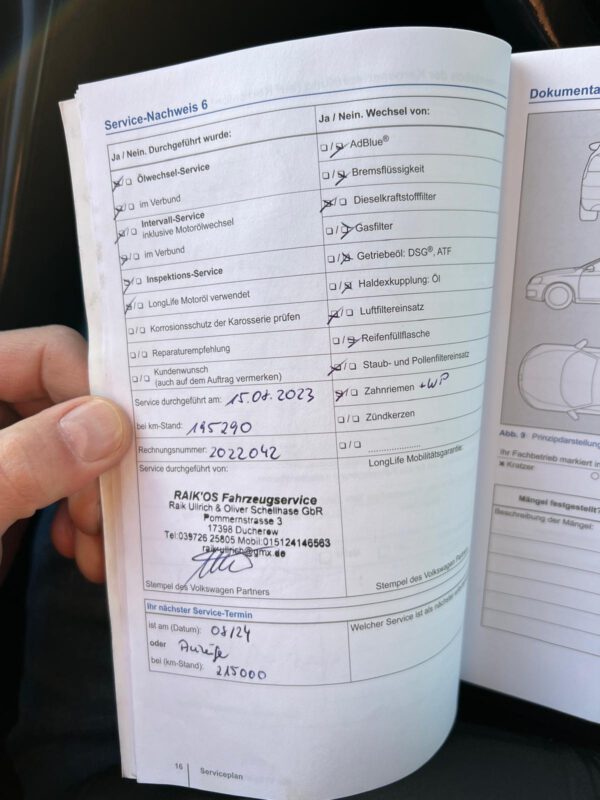 Service-Nachweis 6
Ja / Nein. Durchgeführt wurde:
Ölwechsel-Service
im Verbund
Intervall-Service
inklusive Motorölwechsel
im Verbund
Inspektions-Service
LongLife Motoröl verwendet
Korrosionsschutz der Karosserie prüfen
Reparaturempfehlung
Kundenwunsch
(auch auf dem Auftrag vermerken)
Service durchgeführt am: 15.08.2023
bei km-Stand: 195290
Rechnungsnummer: 2022042
Service durchgeführt von:
RAIK'OS Fahrzeugservice
Raik Ullrich & Oliver Schellhase GbR
Pommernstrasse 3
17398 Ducherow
Tel:039726 25805 Mobil:015124146563
raik-ullrich@gmx.de
Stempel des Volkswagen Partners
Ja / Nein. Wechsel von:
AdBlue®
Bremsflüssigkeit
Dieselkraftstofffilter
Gasfilter
Getriebeöl: DSG®, ATF
Haldexkupplung: Öl
Luftfiltereinsatz
Reifenfüllflasche
Staub- und Pollenfiltereinsatz
Zahnriemen +WP
Zündkerzen
LongLife Mobilitätsgarantie:
Stempel des Volkswagen Partners
Ihr nächster Service-Termin
ist am (Datum): 08/24
oder Anzeige
bei (km-Stand): 215000
Welcher Service ist als nächster
16 Serviceplan
Dokumenta
Abb. 9 Prinzipdarstellung
Ihr Fachbetrieb markiert in
Kratzer
Mängel festgestellt?
Beschreibung der Mängel: